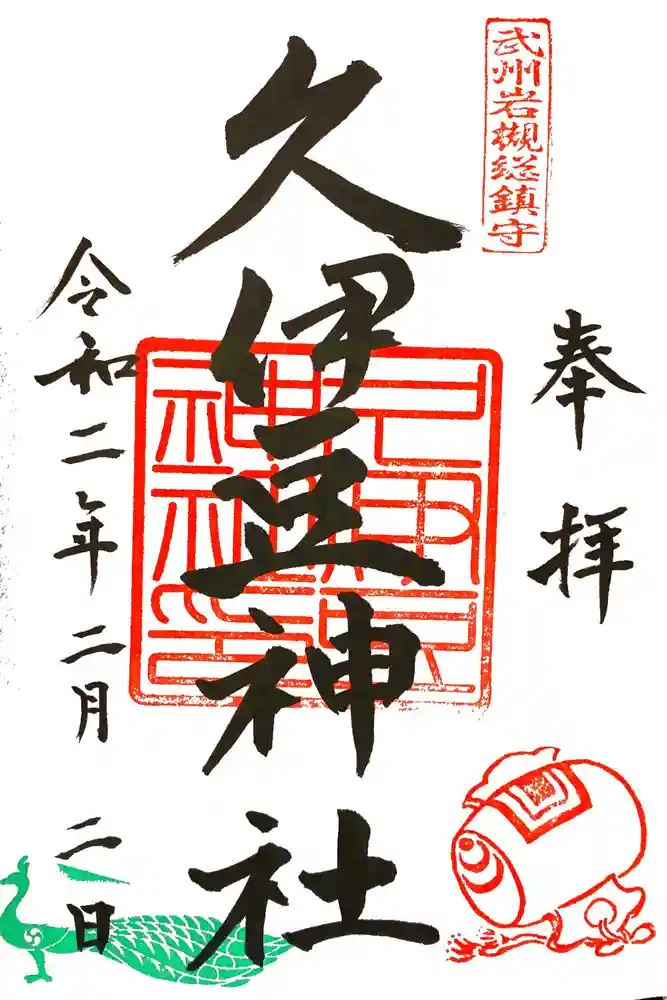 武州岩槻総鎮守
奉拝
久伊豆神社
令和二年二月二日